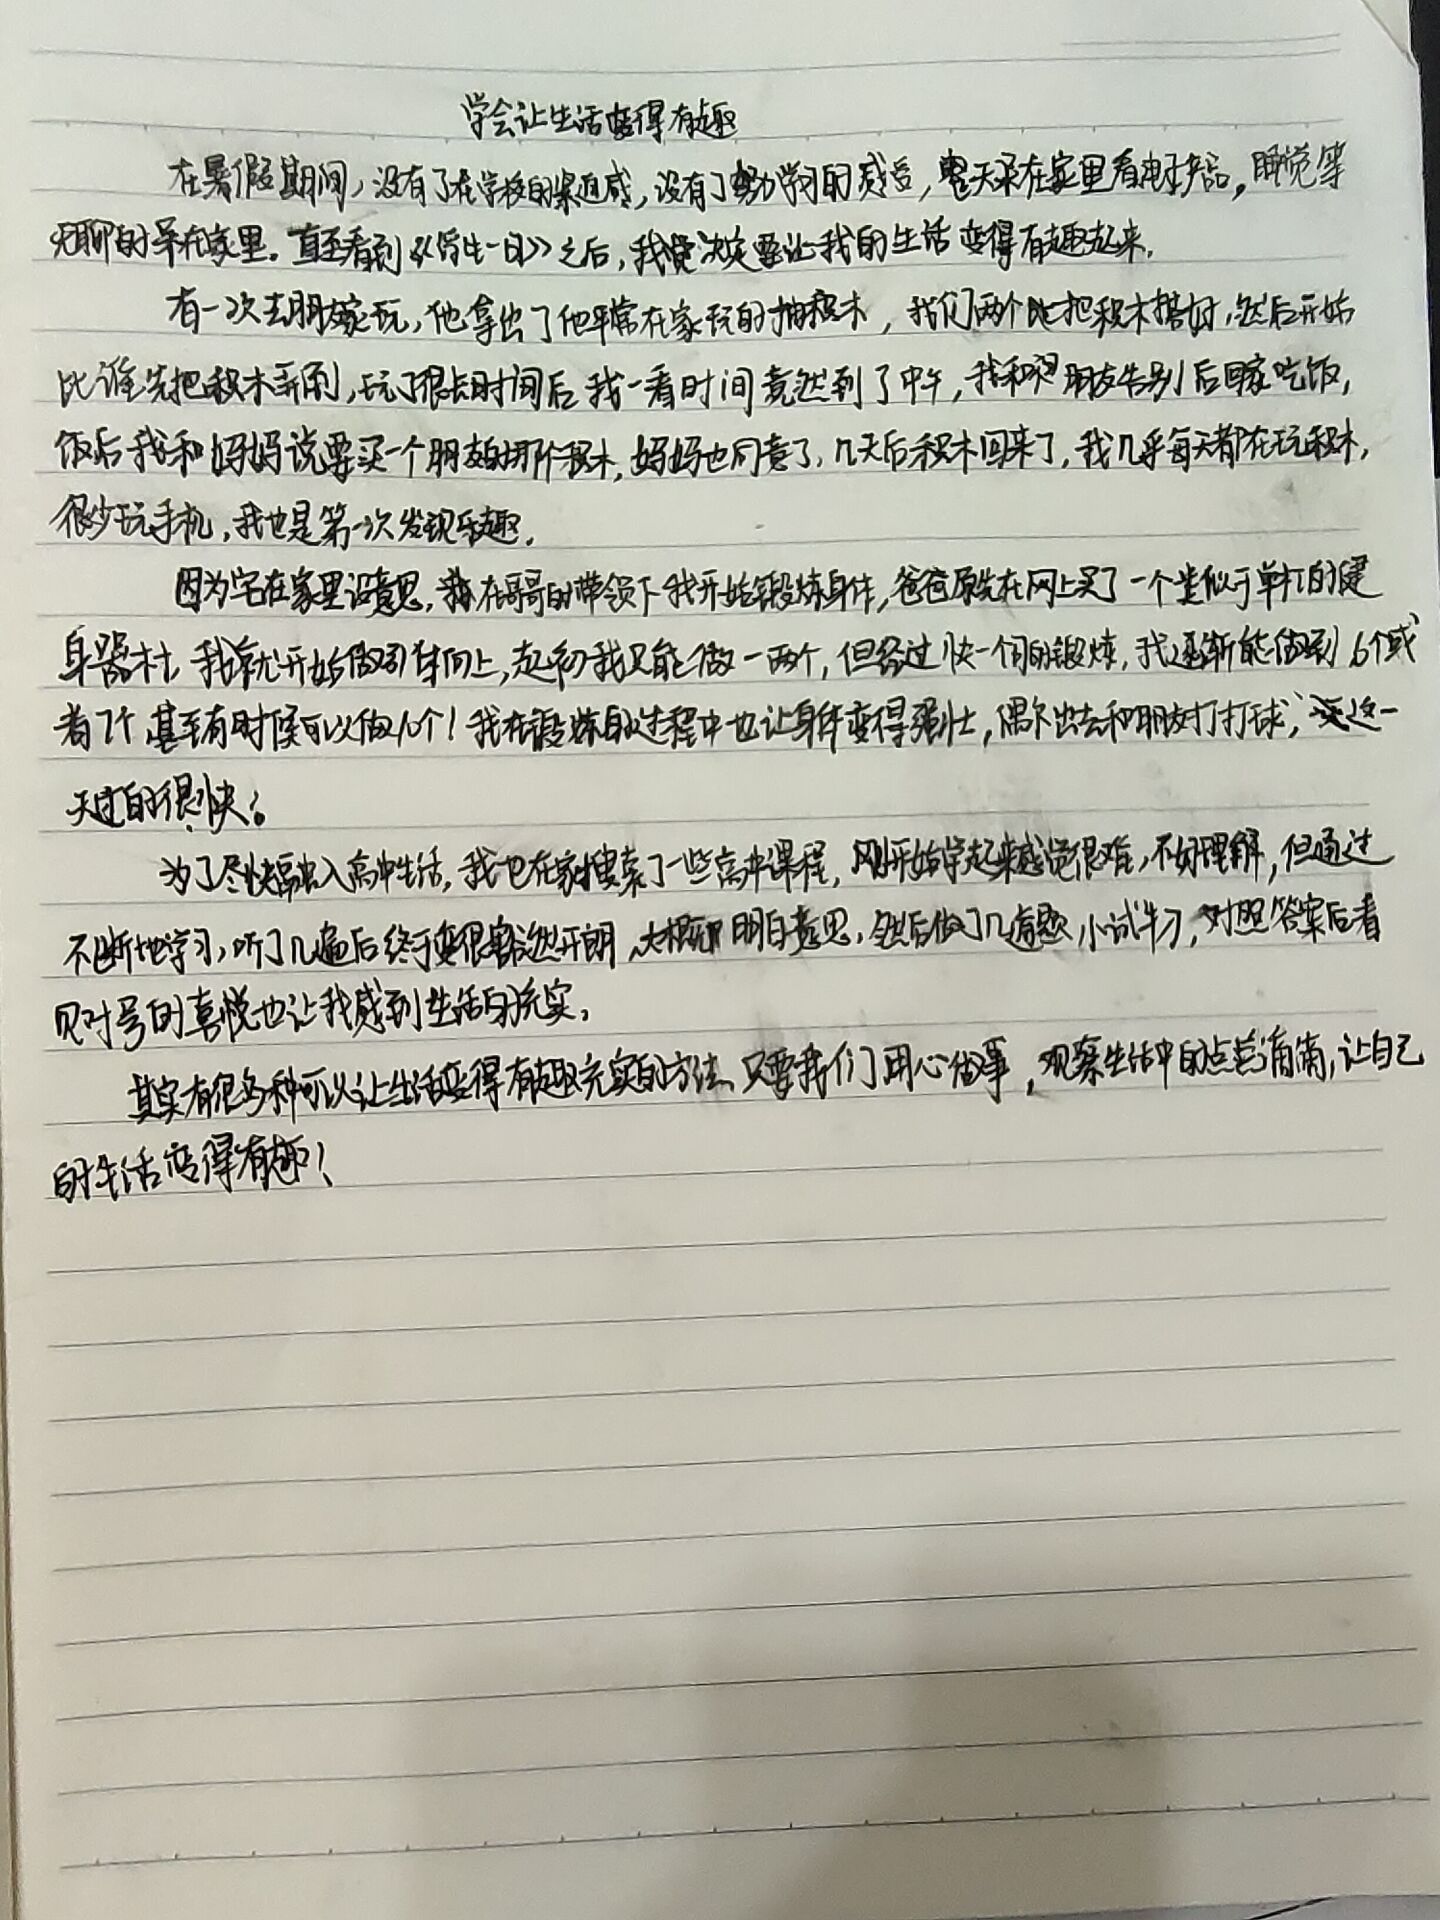 学会让生活变得有趣
在暑假期间，没有了在学校的紧迫感，没有了努力学习的感后，整天呆在家里看电子产品，睡觉等
无聊的呆在家里。直至看到《一日》之后，我决定要让我的生活变得有趣起来。
有一次去朋友家玩，他拿出了他平常在家玩的抽积木，我们两个把积木搭好，然后开始
比谁先把积木弄倒，玩了很长时间后我一看时间竟然到了中午，我和朋友告别后回家吃饭，
饭后我和妈妈说要买一个朋友的那个积木，妈妈也同意了，几天后积木回来了，我几乎每天都在玩积木，
很少玩手机，我也是第一次发现乐趣。
因为宅在家里没意思，在哥哥的带领下我开始锻炼身体，爸爸原先在网上买了一个类似于单杠的健
身器材，我就开始做引体向上，起初我只能做一两个，但经过快一个月的锻炼，我逐渐能做到6个或
者7个甚至有时候可以做10个！我在锻炼的过程中也让身体变得强壮，偶尔出去和朋友打打球，这一
天过的很快。
为了尽快融入高中生活，我也在家搜索了一些高中课程，刚开始学起来感觉很难，不好理解，但通过
不断地学习，听了几遍后终于变得豁然开朗，大概明白意思，然后做了几道题小试牛刀，对照答案后看
见对号的喜悦也让我感到生活的充实。
其实有很多种可以让生活变得有趣充实的方法，只要我们用心做事，观察生活中的点点滴滴，让自己
的生活变得有趣！